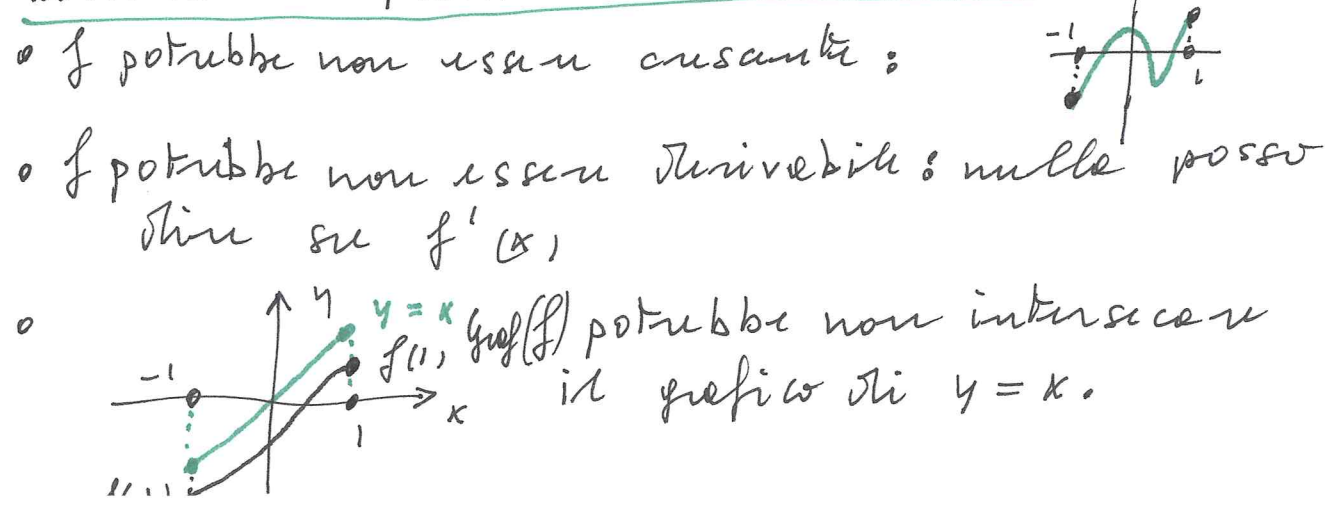 • f potrebbe non essere crescente :
-1
1
• f potrebbe non essere derivabile : nulla posso
dire su f'(x)
• y y = x Graf(f) potrebbe non intersecare
f(1)
-1 il grafico di y = x.
x
1